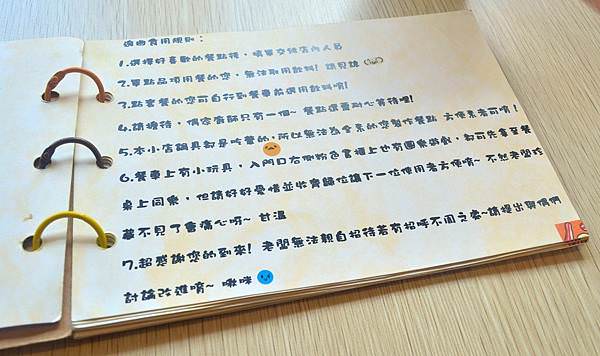 逗曲食用規則：
1.選擇好喜歡的餐點後，填單交給店內人員
2.單點品項用餐的您，無法取用飲料！請見諒
3.點套餐的您可自行到餐車前選用飲料唷！
4.請擔待，偶們廚師只有一個~ 餐點還要耐心等待哩！
5.本小店鍋具都是吃葷的，所以無法為全素的您製作餐點 方便素者可唷！
6.餐車上有小玩具，入門口右側粉色書櫃上也有團康遊戲，都可先拿至餐
桌上同樂，但請好好愛惜並收齊歸位讓下一位使用者方便唷~ 不然老闆珍
藏不見了會痛心呀~ 甘溫
7.超感謝您的到來！老闆無法親自招待若有招呼不周之處~請提出與偶們
討論改進唷~ 啾咪